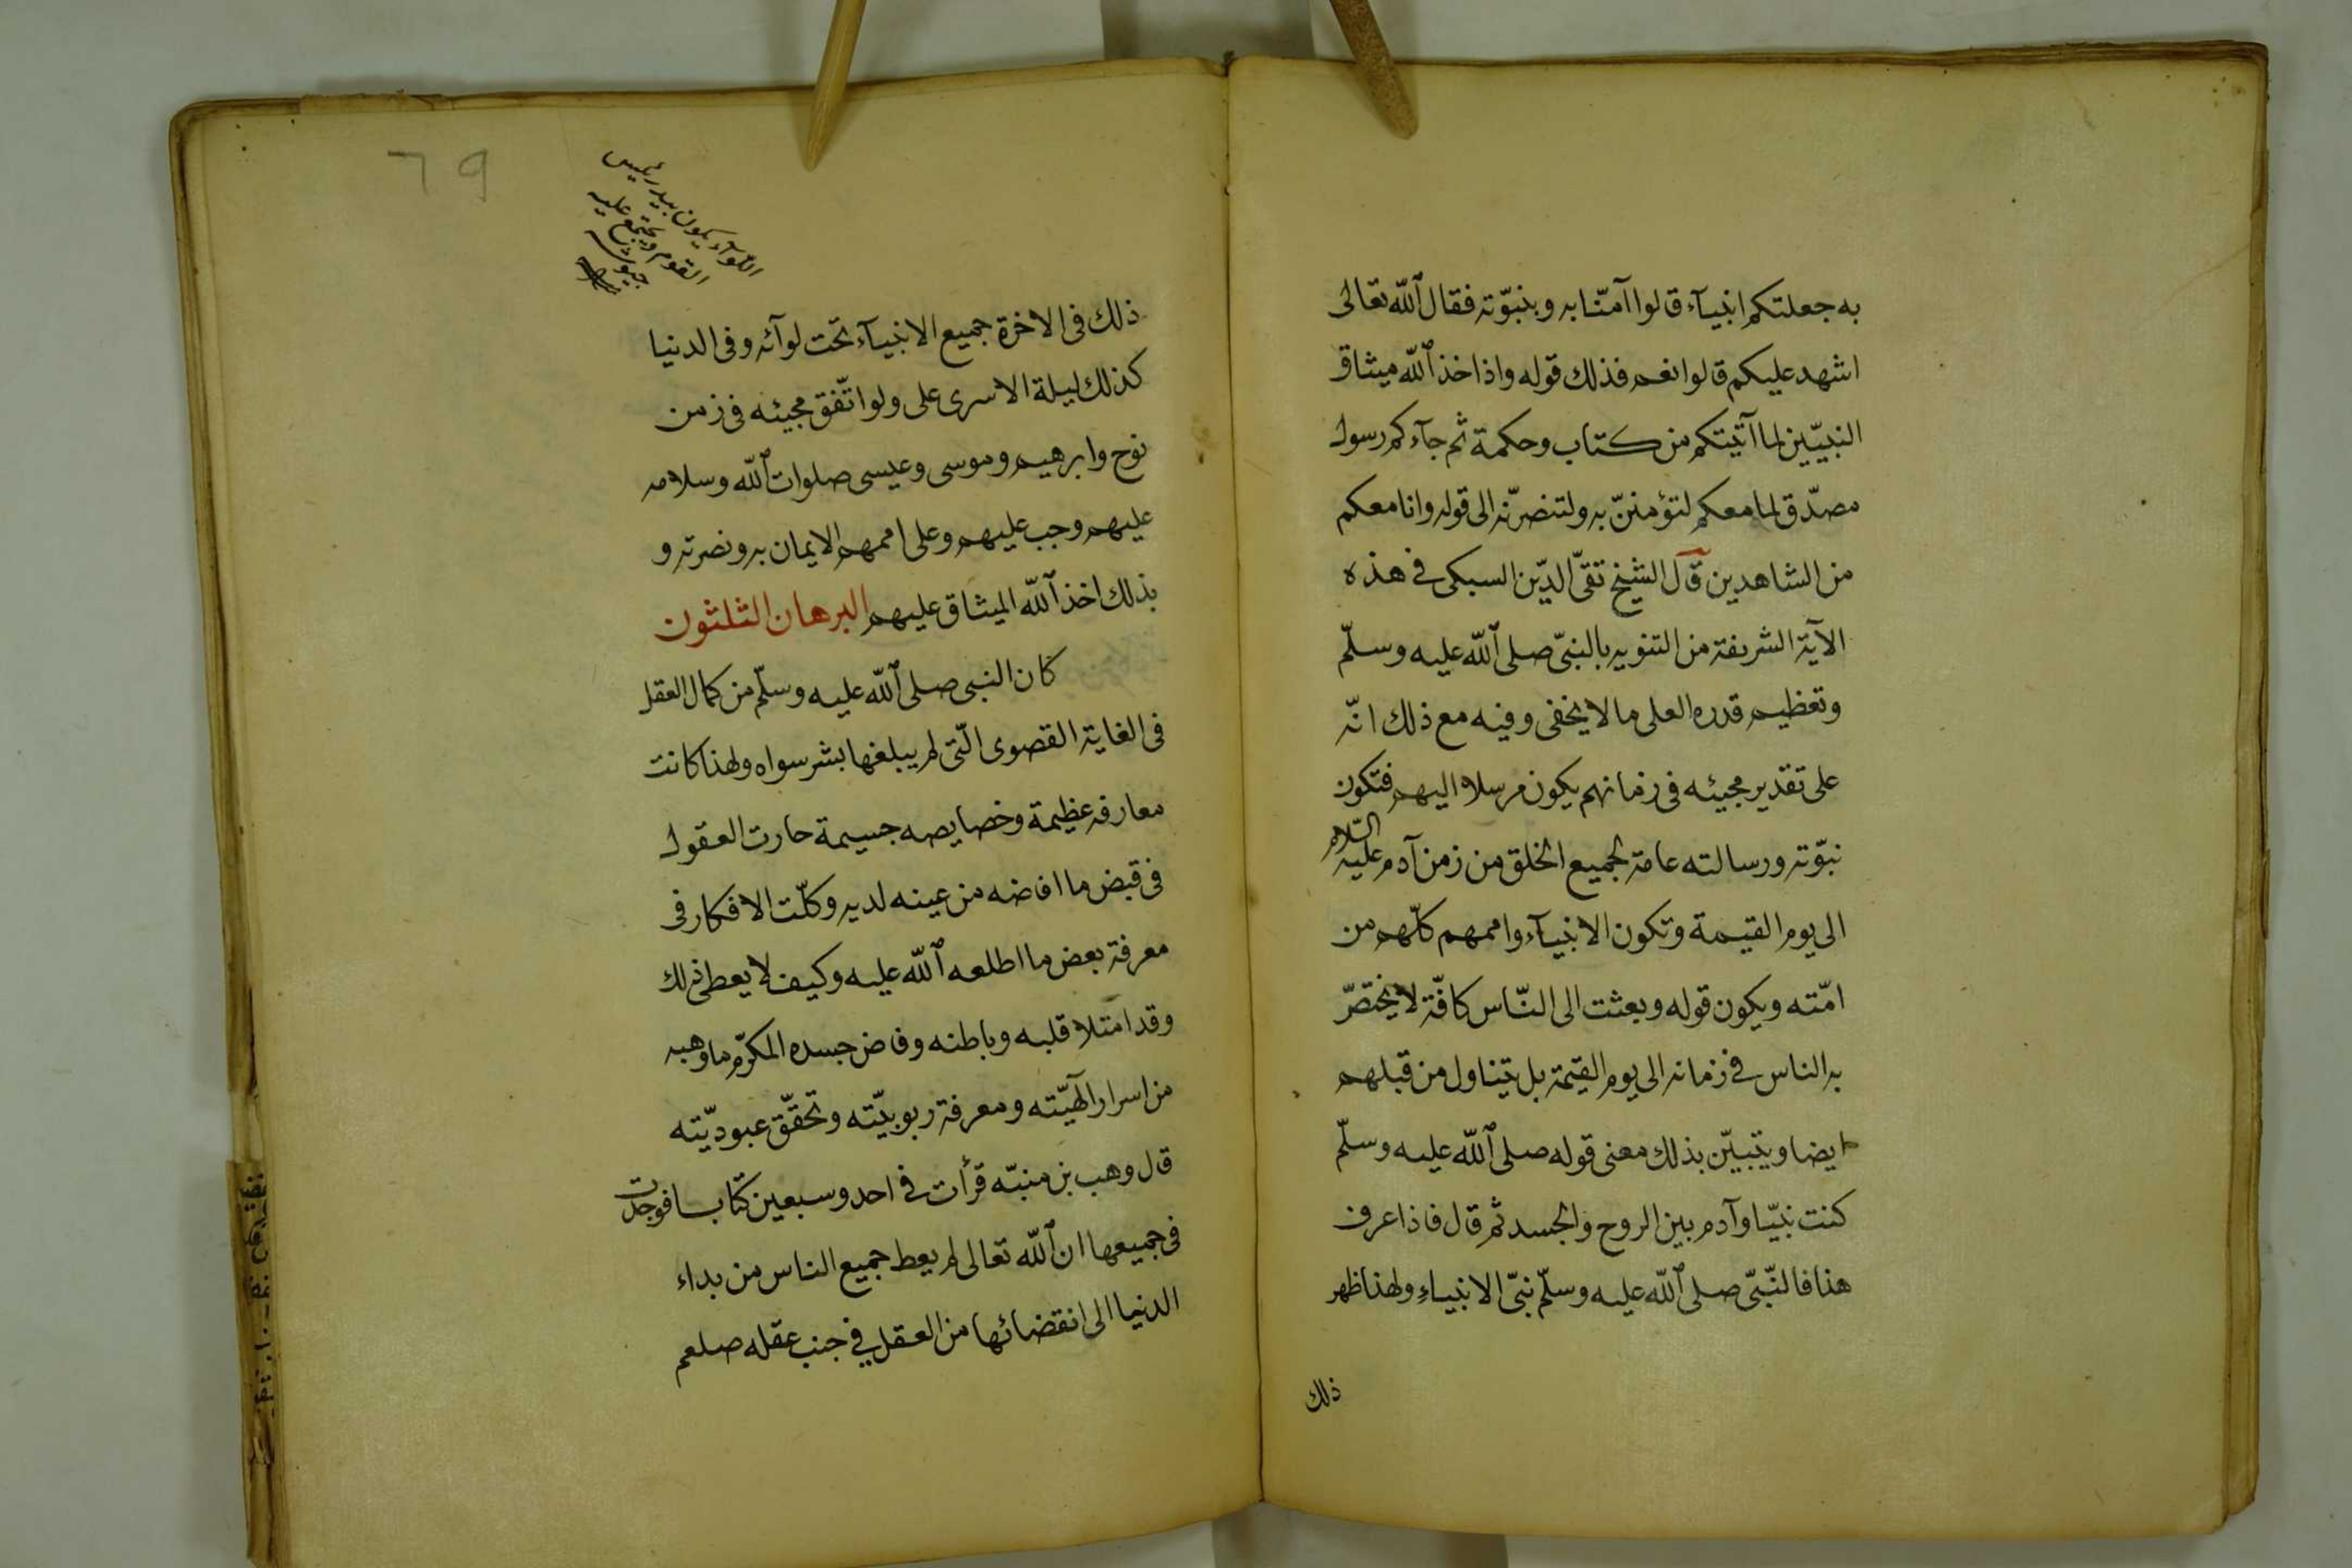 به جعلتكم انبيآء قالوا آمنّا به وبنبوّته فقال الله تعالى
اشهد عليكم قالوا نعم فذلك قوله واذ اخذ الله ميثاق
النبيّين لما آتيتكم من كتاب وحكمة ثم جآءكم رسول
مصدّق لما معكم لتؤمننّ به ولتنصرنّه الى قوله وانا معكم
من الشاهدين قال الشيخ تقىّ الدّين السبكى فى هذه
الآية الشريفة من التنويه بالنبىّ صلى الله عليه وسلّم
وتعظيم قدره العلى ما لا يخفى وفيه مع ذلك انّه
على تقدير مجيئه فى زمانهم يكون مرسلا اليهم فتكون
نبوّته ورسالته عامة لجميع الخلق من زمن آدم عليه السلام
الى يوم القيمة وتكون الانبيآء واممهم كلّهم من
امّته ويكون قوله وبعثت الى النّاس كافّة لا يختصّ
به الناس فى زمانه الى يوم القيمة بل يتناول من قبلهم
ايضا ويتبيّن بذلك معنى قوله صلى الله عليه وسلّم
كنت نبيّا وآدم بين الروح والجسد ثم قال فاذا عرف
هذا فالنّبىّ صلى الله عليه وسلّم نبىّ الانبياء ولهذا ظهر
ذلك
٦٩
اللوآء يكون بيد رئيس
القوم ويجتمع عليه
ذلك فى الاخرة جميع الانبيآء تحت لوآئه وفى الدنيا
كذلك ليلة الاسرى على ولو اتّفق مجيئه فى زمن
نوح وابرهيم وموسى وعيسى صلوات الله وسلامه
عليهم وجب عليهم وعلى اممهم الايمان به ونصرته و
بذلك اخذ الله الميثاق عليهم البرهان الثلثون
كان النبى صلى الله عليه وسلّم من كمال العقل
فى الغاية القصوى الّتى لم يبلغها بشر سواه ولهذا كانت
معارفه عظيمة وخصايصه جسيمة حارت العقول
فى قبض ما افاضه من عينه لديه وكلّت الافكار فى
معرفة بعض ما اطلعه الله عليه وكيف لا يعطى ذلك
وقد امتلا قلبه وباطنه وفاض جسده المكرّم ما وهبه
من اسرار آلهيّته ومعرفة ربوبيّته وتحقّق عبوديّته
قال وهب بن منبّه قرأت فى احد وسبعين كتابا فوجدت
فى جميعها ان الله تعالى لم يعط جميع الناس من بداء
الدنيا الى انقضائها من العقل فى جنب عقله صلعم